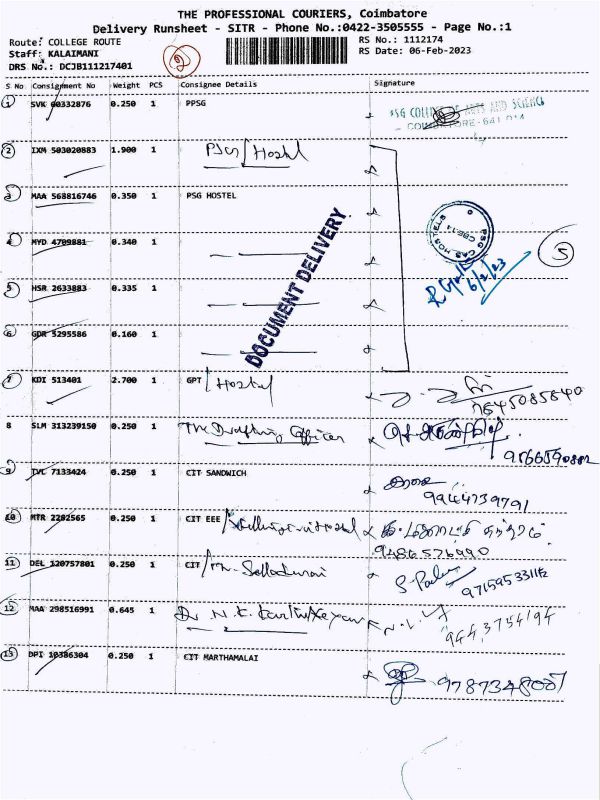 THE PROFESSIONAL COURIERS, Coimbatore
Delivery Runsheet - SITR - Phone No.:0422-3505555 - Page No.:1
Route: COLLEGE ROUTE
Staff: KALAIMANI
DRS No.: DCJB111217401
2
RS No.: 1112174
RS Date: 06-Feb-2023
S No Consignment No Weight PCS Consignee Details Signature
1 SVK 60332876 0.250 1 PPSG
PSG COLLEGE OF ARTS AND SCIENCE
COIMBATORE - 641 014
2 IXM 503020883 1.900 1 PSG/Hostel
3 MAA 568816746 0.350 1 PSG HOSTEL
4 MYD 4709881 0.340 1
PSG CAS HOSTELS
CBE-14
6/2/23
5
5 HSR 2633883 0.335 1
6 GDR 5295586 0.160 1
DOCUMENT DELIVERY
7 KDI 513401 2.700 1 GPT/Hostel
7645085840
8 SLM 313239150 0.250 1 The Drafting Officer
9566590882
9 TVL 7133424 0.250 1 CIT SANDWICH
9944739791
10 MTR 2202565 0.250 1 CIT EEE/
9486576990
11 DEL 120757801 0.250 1 CIT/
9715953311
12 MAA 298516991 0.645 1 Dr N.K. Karthikeyan
9443754194
13 DPI 10386304 0.250 1 CIT MARTHAMALAI
9787348007